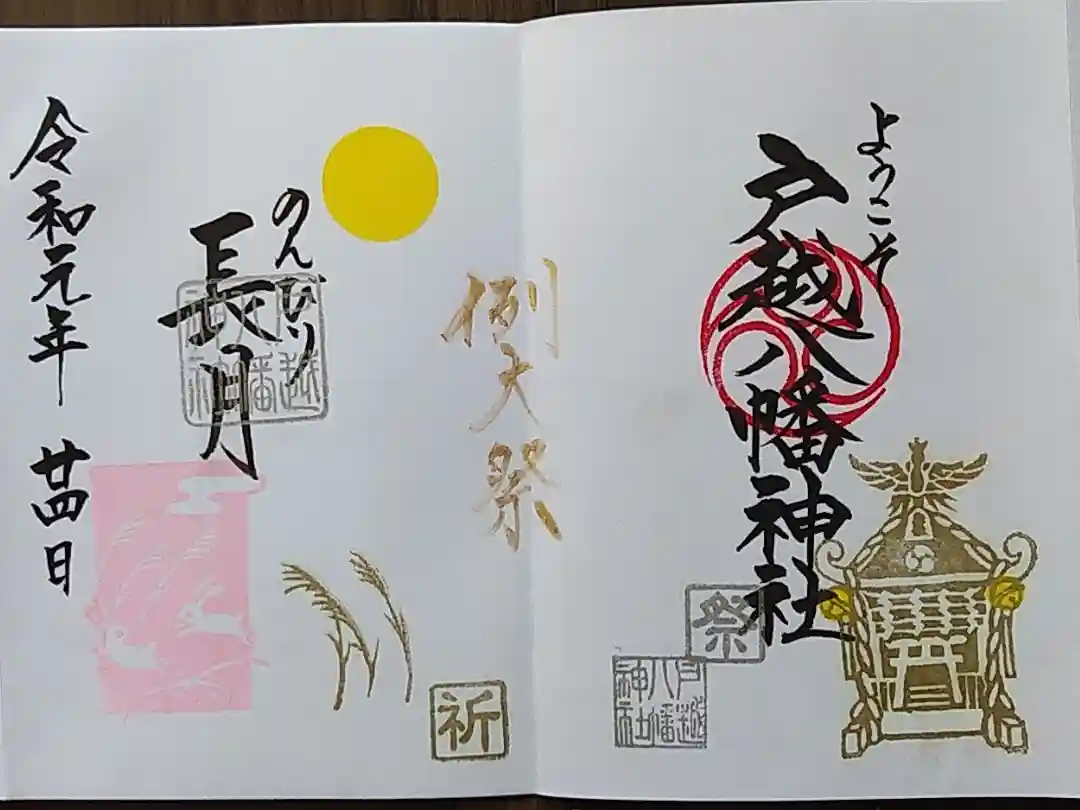 ようこそ
戸越八幡神社
祭
戸越
八幡
神社
例大祭
祈
のんびり
長月
戸越
八幡
神社
令和元年 廿四日